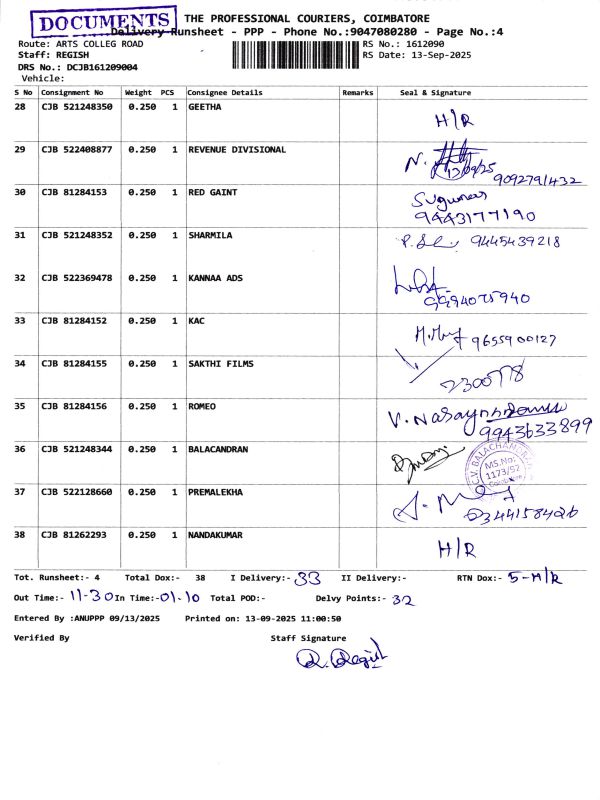 DOCUMENTS
THE PROFESSIONAL COURIERS, COIMBATORE
Delivery Runsheet - PPP - Phone No.:9047080280 - Page No.:4
Route: ARTS COLLEG ROAD
RS No.: 1612090
Staff: REGISH
RS Date: 13-Sep-2025
DRS No.: DCJB161209004
Vehicle:
S No Consignment No Weight PCS Consignee Details Remarks Seal & Signature
28 CJB 521248350 0.250 1 GEETHA H/R
29 CJB 522408877 0.250 1 REVENUE DIVISIONAL N. 13/09/25
9092791432
30 CJB 81284153 0.250 1 RED GAINT
9443177190
31 CJB 521248352 0.250 1 SHARMILA 9445439218
32 CJB 522369478 0.250 1 KANNAA ADS
9994075940
33 CJB 81284152 0.250 1 KAC 9655900127
34 CJB 81284155 0.250 1 SAKTHI FILMS
2300778
35 CJB 81284156 0.250 1 ROMEO
9943633899
36 CJB 521248344 0.250 1 BALACANDRAN
MS.No:
1173/92
37 CJB 522128660 0.250 1 PREMALEKHA
38 CJB 81262293 0.250 1 NANDAKUMAR H/R
Tot. Runsheet:- 4 Total Dox:- 38 I Delivery:- 33 II Delivery:- RTN Dox:- 5-H/R
Out Time:- 11-30 In Time:- 01-10 Total POD:- Delvy Points:- 32
Entered By :ANUPPP 09/13/2025 Printed on: 13-09-2025 11:00:50
Verified By Staff Signature
R. Regish